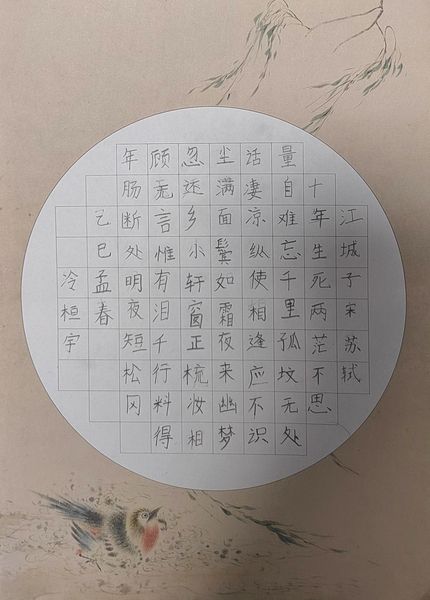 江城子宋苏轼
十年生死两茫不思
量自难忘千里孤坟无处
话凄凉纵使相逢应不识
尘满面鬓如霜夜来幽梦
忽还乡小轩窗正梳妆相
顾无言惟有泪千行料得
年肠断处明夜短松冈
乙巳孟春
冷桓宇